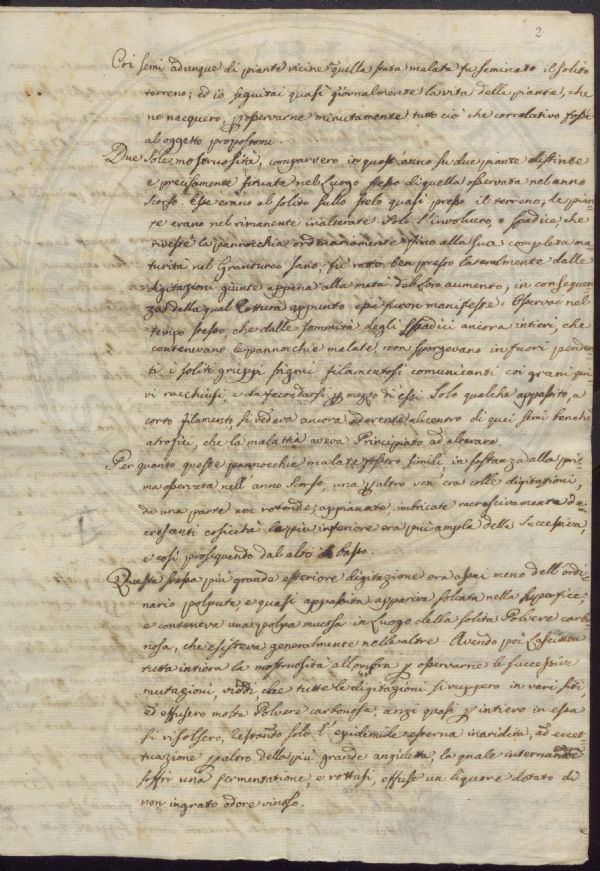 2
Coi semi adunque di piante vicine a quella stata malata fu seminato il solito
terreno; ed io seguitai quasi giornalmente la vita delle piante, che
ne nacquero, p osservarne minutamente tutto ciò che correlativo fosse
al oggetto propostomi.
Due sole mostruosità, comparvero in quest'anno su due piante distinte
e precisamente situate nel luogo stesso di quella osservata nel anno
scorso. Esse erano al solito sullo stelo quasi presso il terreno; le pian-
te erano nel rimanente inalterate. Solo l'involucro, o spadice, che
riveste la pannocchia ordinariamente fino alla sua completa ma-
turità nel Granturco sano, fu rotto ben presto lateralmente dalle
digitazioni giunte appena alla metà del loro aumento, in conseguen-
za della qual rottura appunto esse furon manifeste. Osservai nel
tempo stesso, che dalle sommità degli spadici ancora intieri, che
contenevano le pannocchie malate, non sporgevano in fuori penden-
ti i soliti gruppi stigmi filamentosi comunicanti coi grani qui-
vi racchiusi e da fecondarsi p mezzo di essi. Solo qualche appassito, e
corto filamento si vedeva ancora aderente al centro di quei semi benchè
atrofici, che la malattia aveva principiato ad alterare.
Per quanto queste pannocchie malate fossero simili, in sostanza alla pri-
ma osservata nell'anno scorso, una p altro ven'era colle digitazioni,
da una parte non rotonde, appianate, imbricate decre-
scenti cosicchè la più inferiore era più ampla della successiva,
e così proseguendo dal alto basso.
Questa stessa più grande esteriore digitazione era assai meno dell'ordi-
nario polputa e quasi appassita appariva solcata nella superficie,
e conteneva una polpa mucosa in luogo della solita Polvere carbo-
nosa, che esisteva generalmente nelle altre. Avendo poi lasciata
tutta intiera la mostruosità all'ombra p osservarne le successive
mutazioni, viddi che tutte le digitazioni si ruppero in varj siti
ed effusero molta Polvere carbonosa anzi quasi p intiero in essa
si risolsero, restando solo l'epidermide esterna inaridita, ad eccet-
tuazione p altro della più grande anzidetta, la quale internamente
soffrì una fermentazione, e rottasi, effuse un liquore dotato di
non ingrato odore vinoso.